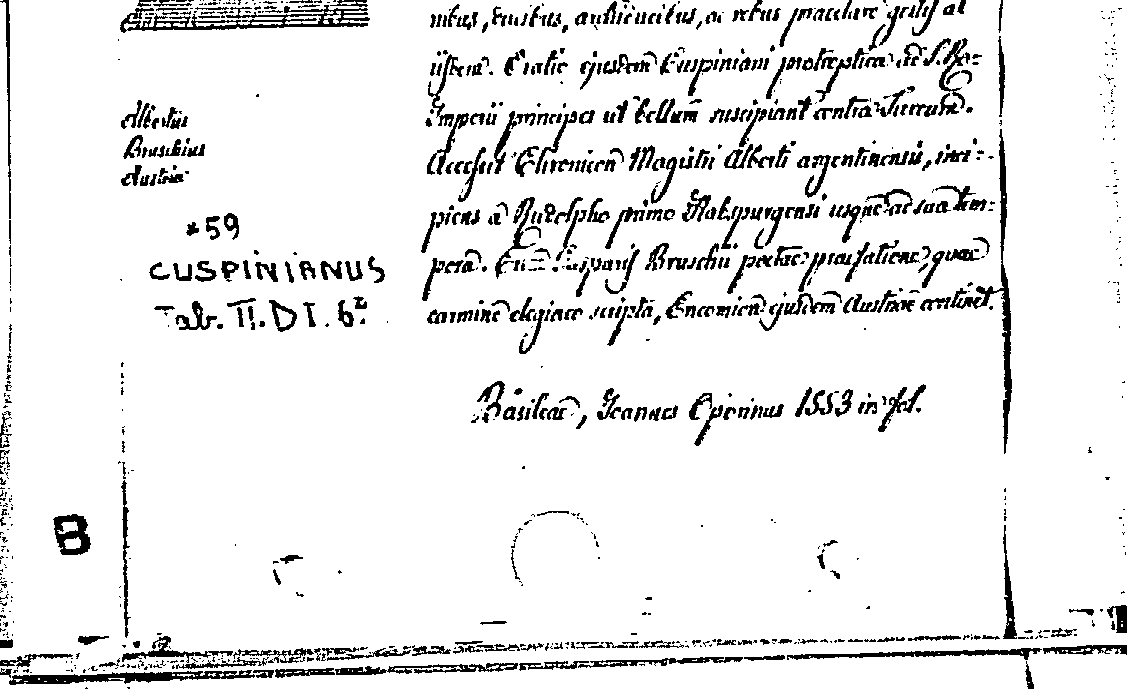 nibus, finibus, antiquitatibus, ac rebus praeclare gestis ab
iisdem. Oratio ejusdem Cuspiniani protreptica ad S. Ro-
Imperii principes ut bellum suscipiant contra Turcum.
Accessit Chronicon Magistri Alberti argentinensis, inci-
piens a Rudolpho primo Habspurgensi usque ad sua tem-
pora. Cum Gasparis Bruschii poetae praefatione, quae
carmine elegiaco scripta, Encomion ejusdem Austriae continet.
Basileae, Ioannes Oporinus 1553 in fol.
Albertus
Bruschius
Austria
*59
CUSPINIANUS
Tab. II. D I. 6.
B